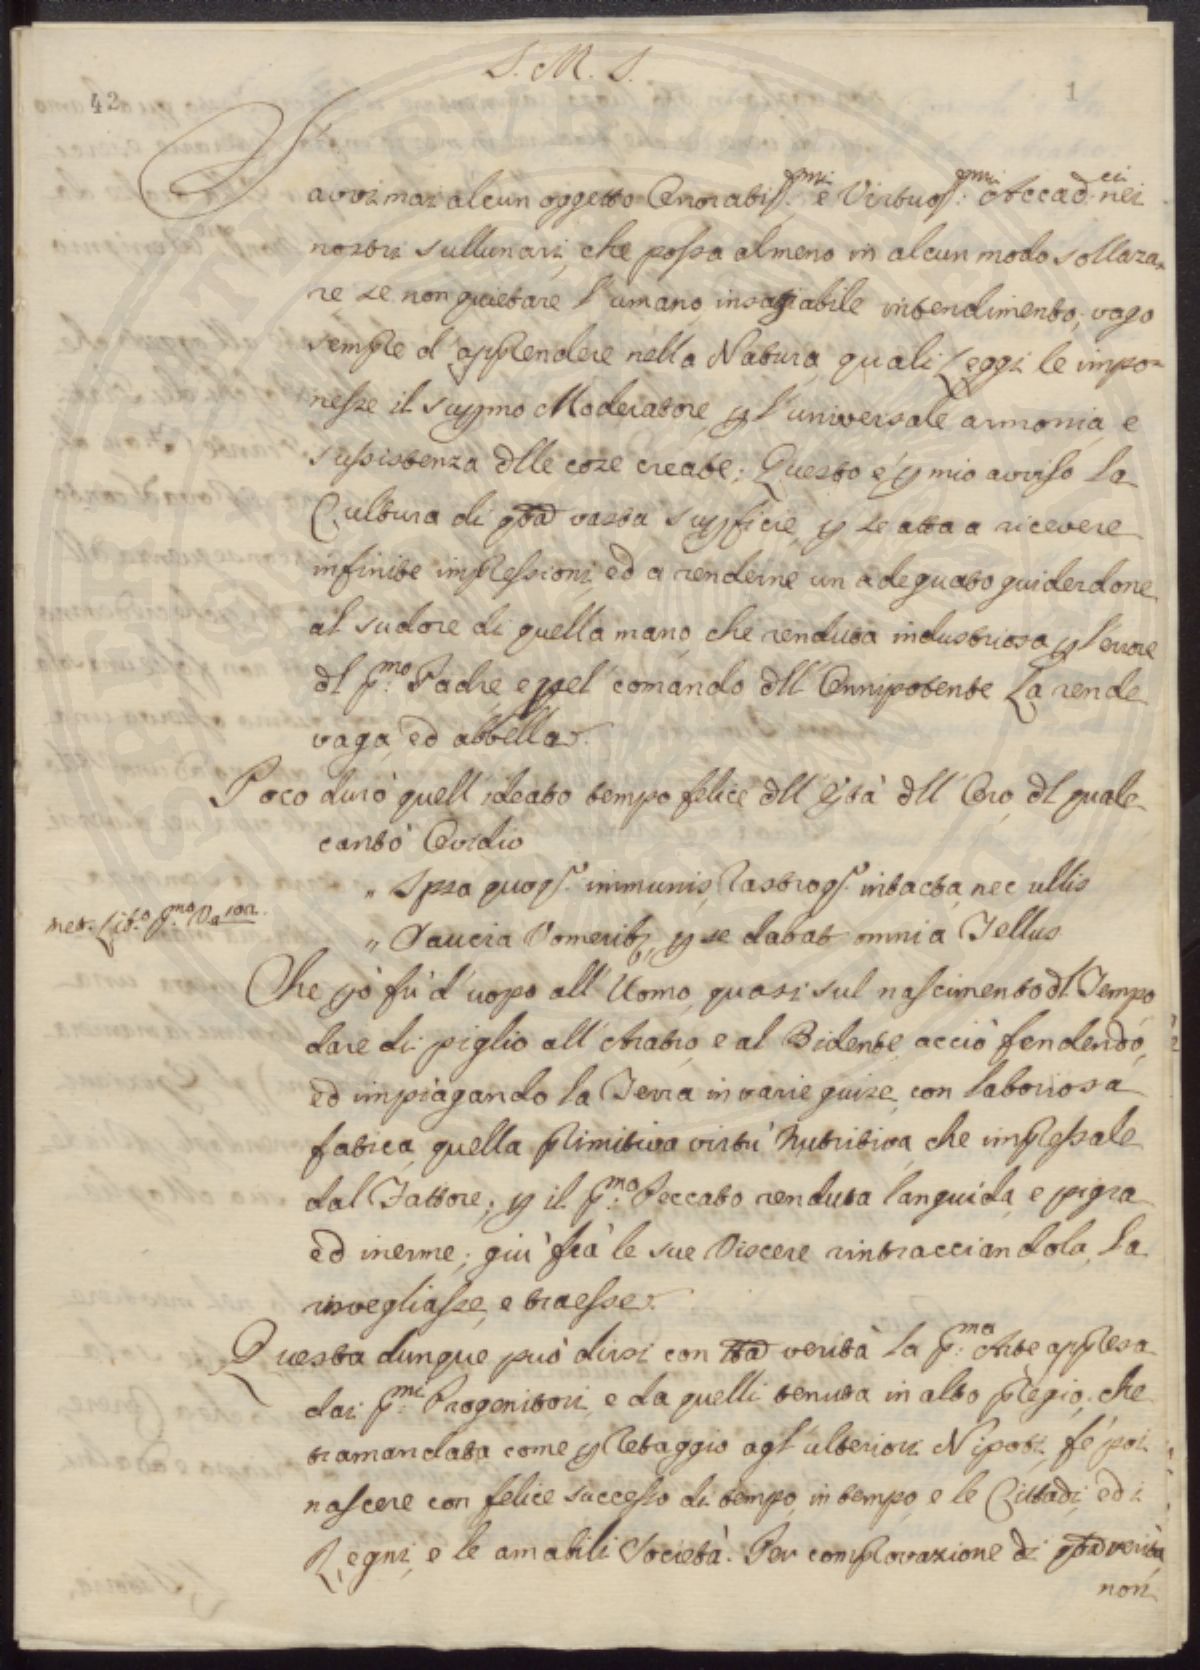 S. M. S.
42
1
avvi mai alcun oggetto Onoratiss.mi e Virtuos.mi Accad.ci nei
nostri sullunari, che possa almeno in alcun modo sollaza-
re se non quietare l'umano, insaziabile intendimento, vago
sempre d'apprendere nella Natura, quali Leggi le impo-
nesse il supmo Moderatore p l'universale armonia, e
sussistenza dlle cose create; Questo è p mio avviso la
Cultura di qta vasta supficie, p se atta a ricevere
infinite impressioni, ed a renderne un adeguato guiderdone
al sudore di quella mano, che renduta industriosa p l'errore
dl p.mo Padre, e pel comando dll' Onnipotente La rende
vaga, ed abbella.
Poco durò quell' ideato tempo felice dll' età dll' Oro, dl quale
cantò Ovidio
„ Ipsa quoq. immunis, rastroq. intacta, nec ullis
Met. Lib.o p.mo
„ Saucia Vomerib, p se dabat omnia Tellus
Che pò fù d'uopo all' Uomo, quasi sul nascimento dl Tempo
dare di piglio all' Aratro, e al Bidente, acciò fendendo,
ed impiagando la Terra in varie guise, con laboriosa
fatica, quella primitiva virtù Nutritiva, che impressale
dal Fattore; p il p.mo Peccato renduta languida, e pigra
ed inerme; giù frà le sue Viscere rintracciandola, la
risvegliasse, e traesse.
Questa dunque può dirsi con tta verità la p.ma Arte appresa
dai p.mi Progenitori, e da quelli tenuta in alto pregio, che
tramandata come p retaggio agl' ulteriori Nipoti, fé poi
nascere con felice successo di tempo, in tempo, e le Cittadi, ed i
Regni, e le amabili Società. Per comprovazione di qta verità
non